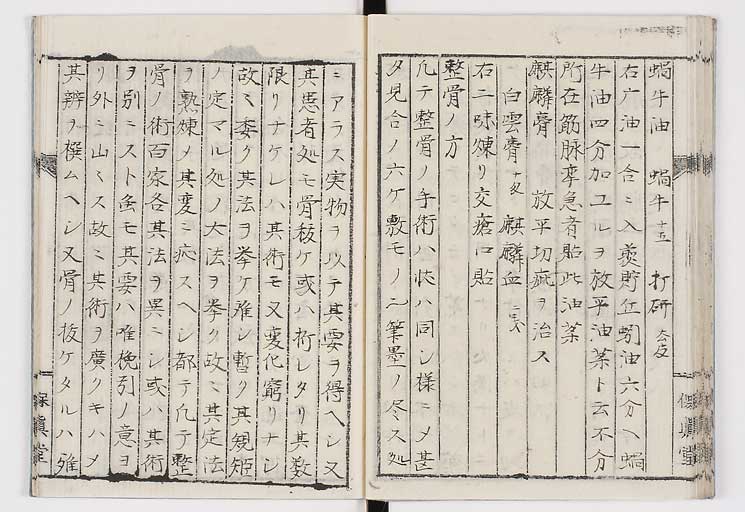 蝸牛油　蝸牛十五　打研
右广油一合ニ入煑貯丘蚓油六分ヘ蝸
牛油四分加エルヲ放平油薬ト云不分
所在筋脉牽急者貼此油薬
麒麟膏　放平切疵ヲ治ス
白雲膏十匁　麒麟血
右二味煉リ交瘡口貼
整骨ノ方
凢テ整骨ノ手術ハ状ハ同シ様ニメ甚
タ見合ノ六ケ敷モノニ筆墨ノ尽ス処
ニアラス実物ヲ以テ其要ヲ得ヘシ又
其患者処モ骨抜ケ或ハ折レタリ其数
限リナケレハ其術モ又変化窮リナシ
故ニ委ク其法ヲ挙ケ難シ暫ク其規矩
ノ定マル処ノ大法ヲ挙ク故ニ其定法
ヲ熟煉メ其変ニ応スヘシ都テ凢テ整
骨ノ術百家各其法ヲ異ニシ或ハ其術
ヲ別ニスト虽モ其要ハ唯挽引ノ意ヨ
リ外ニ出ス故ニ其術ヲ廣クキハメ
其辨ヲ撰ムヘシ又骨ノ抜ケタルハ雅
保真堂
保真堂